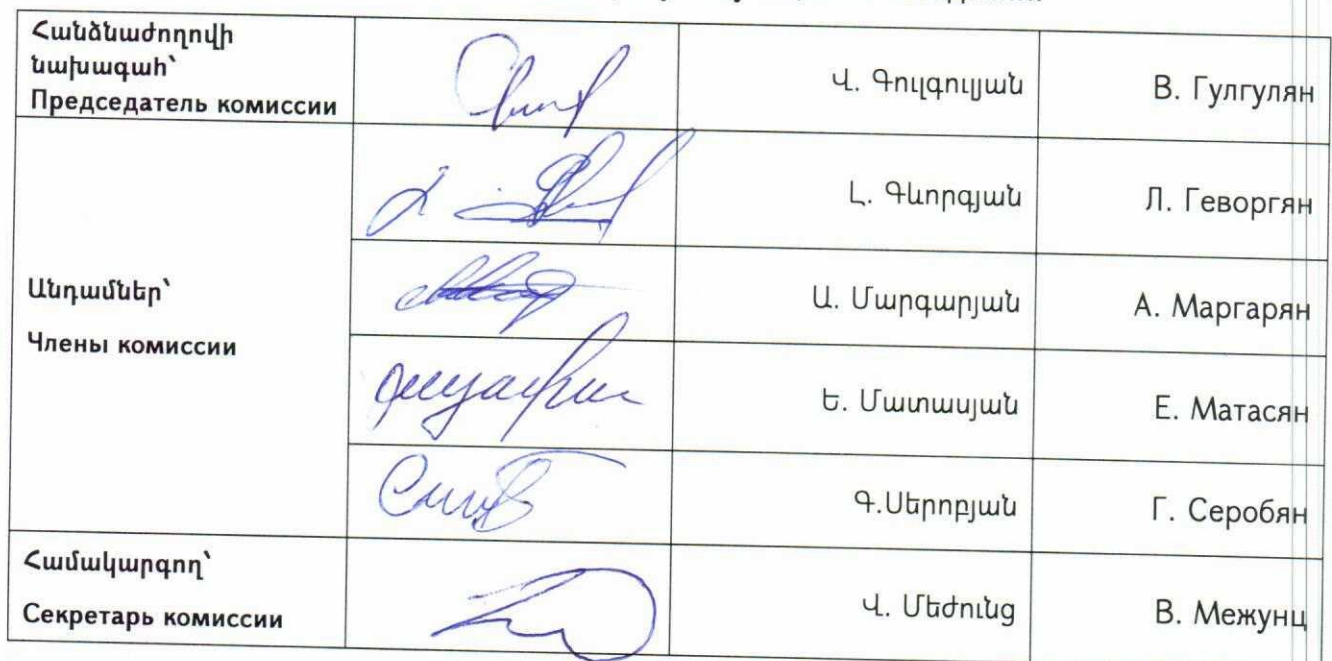 Հանձնաժողովի
նախագահ՝
Председатель комиссии
Վ. Գուլգուլյան
В. Гулгулян
Լ. Գևորգյան
Л. Геворгян
Անդամներ՝
Члены комиссии
Ա. Մարգարյան
А. Маргарян
Ե. Մատասյան
Е. Матасян
Գ.Սերոբյան
Г. Серобян
Համակարգող՝
Секретарь комиссии
Վ. Մեժունց
В. Межунц